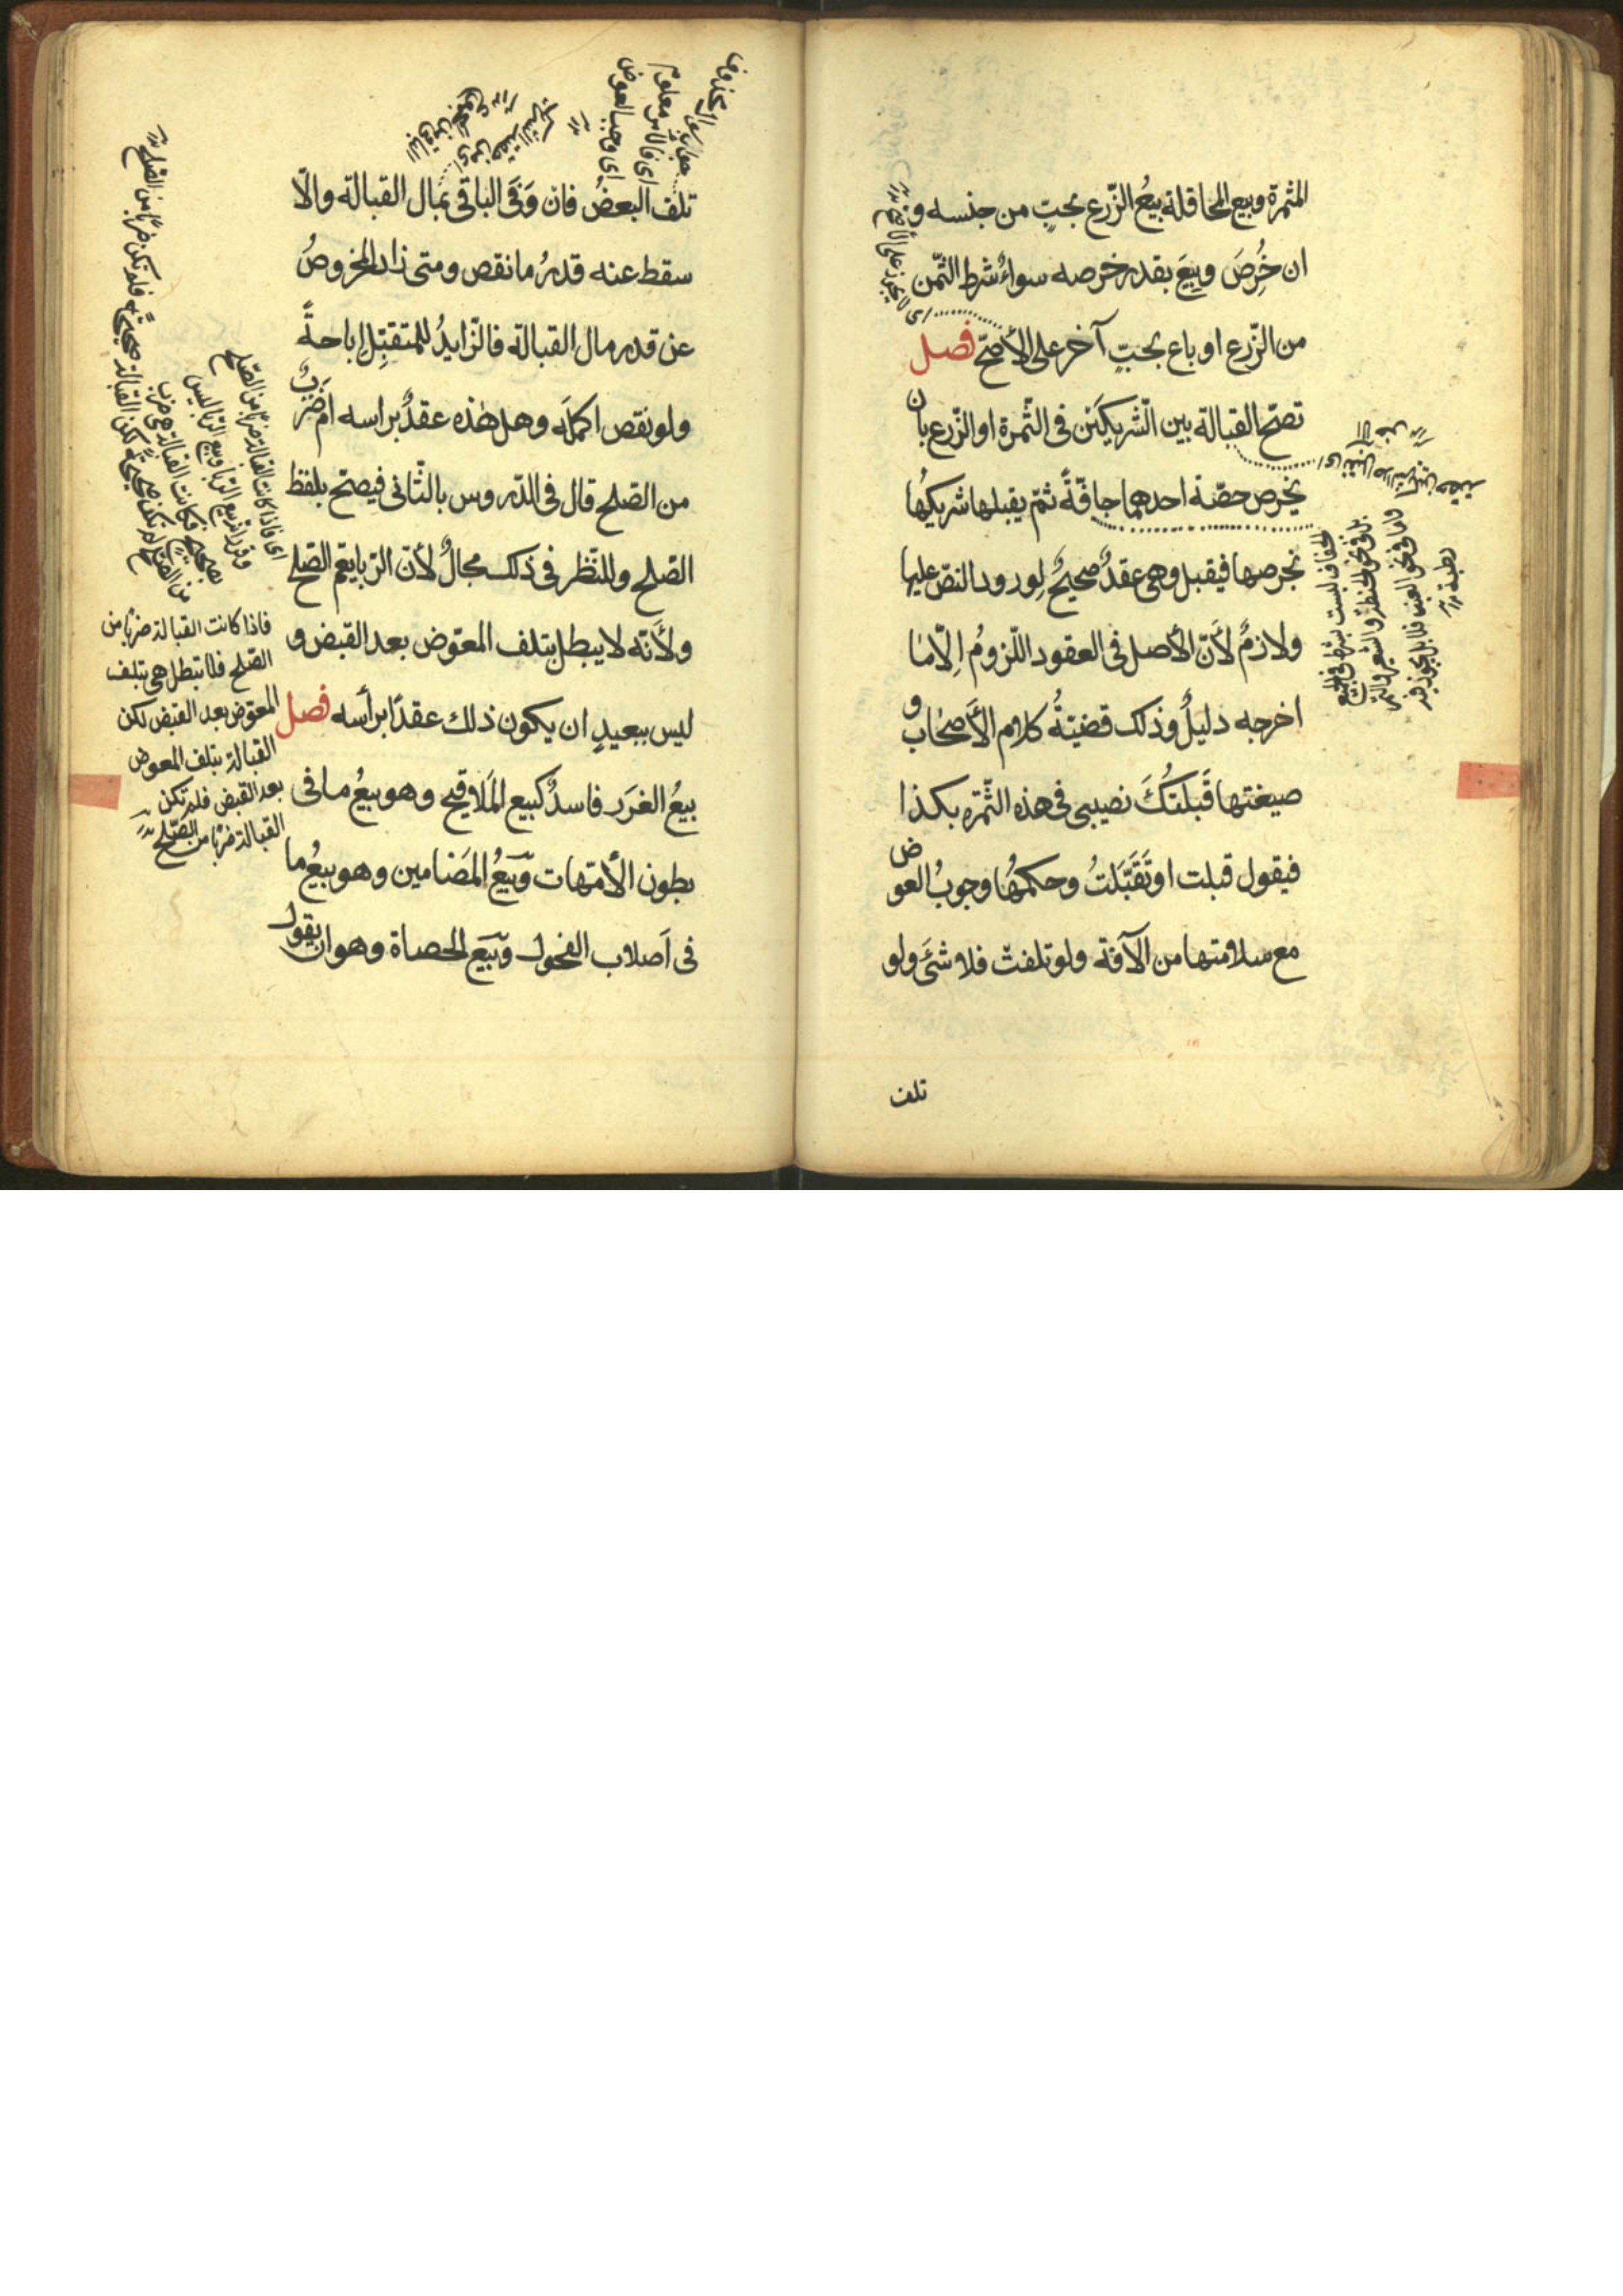 المثمرة وبيع المحاقلة بيعُ الزّرع بحبٍّ من جنسه و
ان خُرِصَ وبِيعَ بقدر خرصه سواءٌ شرط الثّمن
من الزّرع او باع بحبٍّ آخر على الأصحّ فصل
تصحّ القبالة بين الشّريكَين فى الثّمرة او الزّرع بان
يخرص حصّة احدهما جافّةً ثمّ يقبلها شريكُها
بخرصها فيقبل وهى عقدٌ صحيحٌ لِورود النصّ عليها
ولازمٌ لأنّ الأصل فى العقود اللّزومُ الّا ما
اخرجه دليلٌ وذلك قضيّةُ كلام الأصحاب و
صيغتها قَبلتُكَ نصيبى فى هذه الثّمرة بكذا
فيقول قبلت او تَقَبَّلتُ وحكمُها وجوبُ العوض
مع سلامتها من الآفة ولو تلفت فلا شئَ ولو
تلف
اى لا يجوز على الأصح
الجفاف ليست بشرط فى الجميع
بل فى نحو الحنطة والشعير والتمر
وامّا فى نحو العنب فلا بل يجوز فيه
رطبة
تلف البعضُ فان وَفَى الباقى بمال القبالة والّا
سقط عنه قدرُ ما نقص ومتى زاد المخروصُ
عن قدر مال القبالة فالزّايدُ للمتقبِّل إباحةً
ولو نقص اكملَه وهل هذه عقدٌ براسه ام ضَربٌ
من الصّلح قال فى الدّروس بالثّانى فيصحّ بلفظ
الصّلح وللنّظر فى ذلك مجالٌ لأنّ الرّبا يعمّ الصّلح
ولأنّه لا يبطل بتلف المعوّض بعد القبض و
ليس ببعيدٍ ان يكون ذلك عقدًا برأسه فصل
بيعُ الغرَر فاسدٌ كبيع المَلاقيح وهو بيعُ ما فى
بطون الأمّهات وبَيعُ المَضامين وهو بيعُ ما
فى اَصلاب الفحول وبَيَع الحصاة وهو ان يقول
جواب المحذوف
اى فالأمر معلوم
اى وجب العوض
اى فاذا كانت القبالة ضربًا من الصّلح
فاذا كانت القبالة ضربًا من
الصّلح فلا تبطل هى بتلف
المعوّض بعد القبض لكن
القبالة بتلف المعوض
بعد القبض فلم تكن
القبالة ضربًا من الصّلح